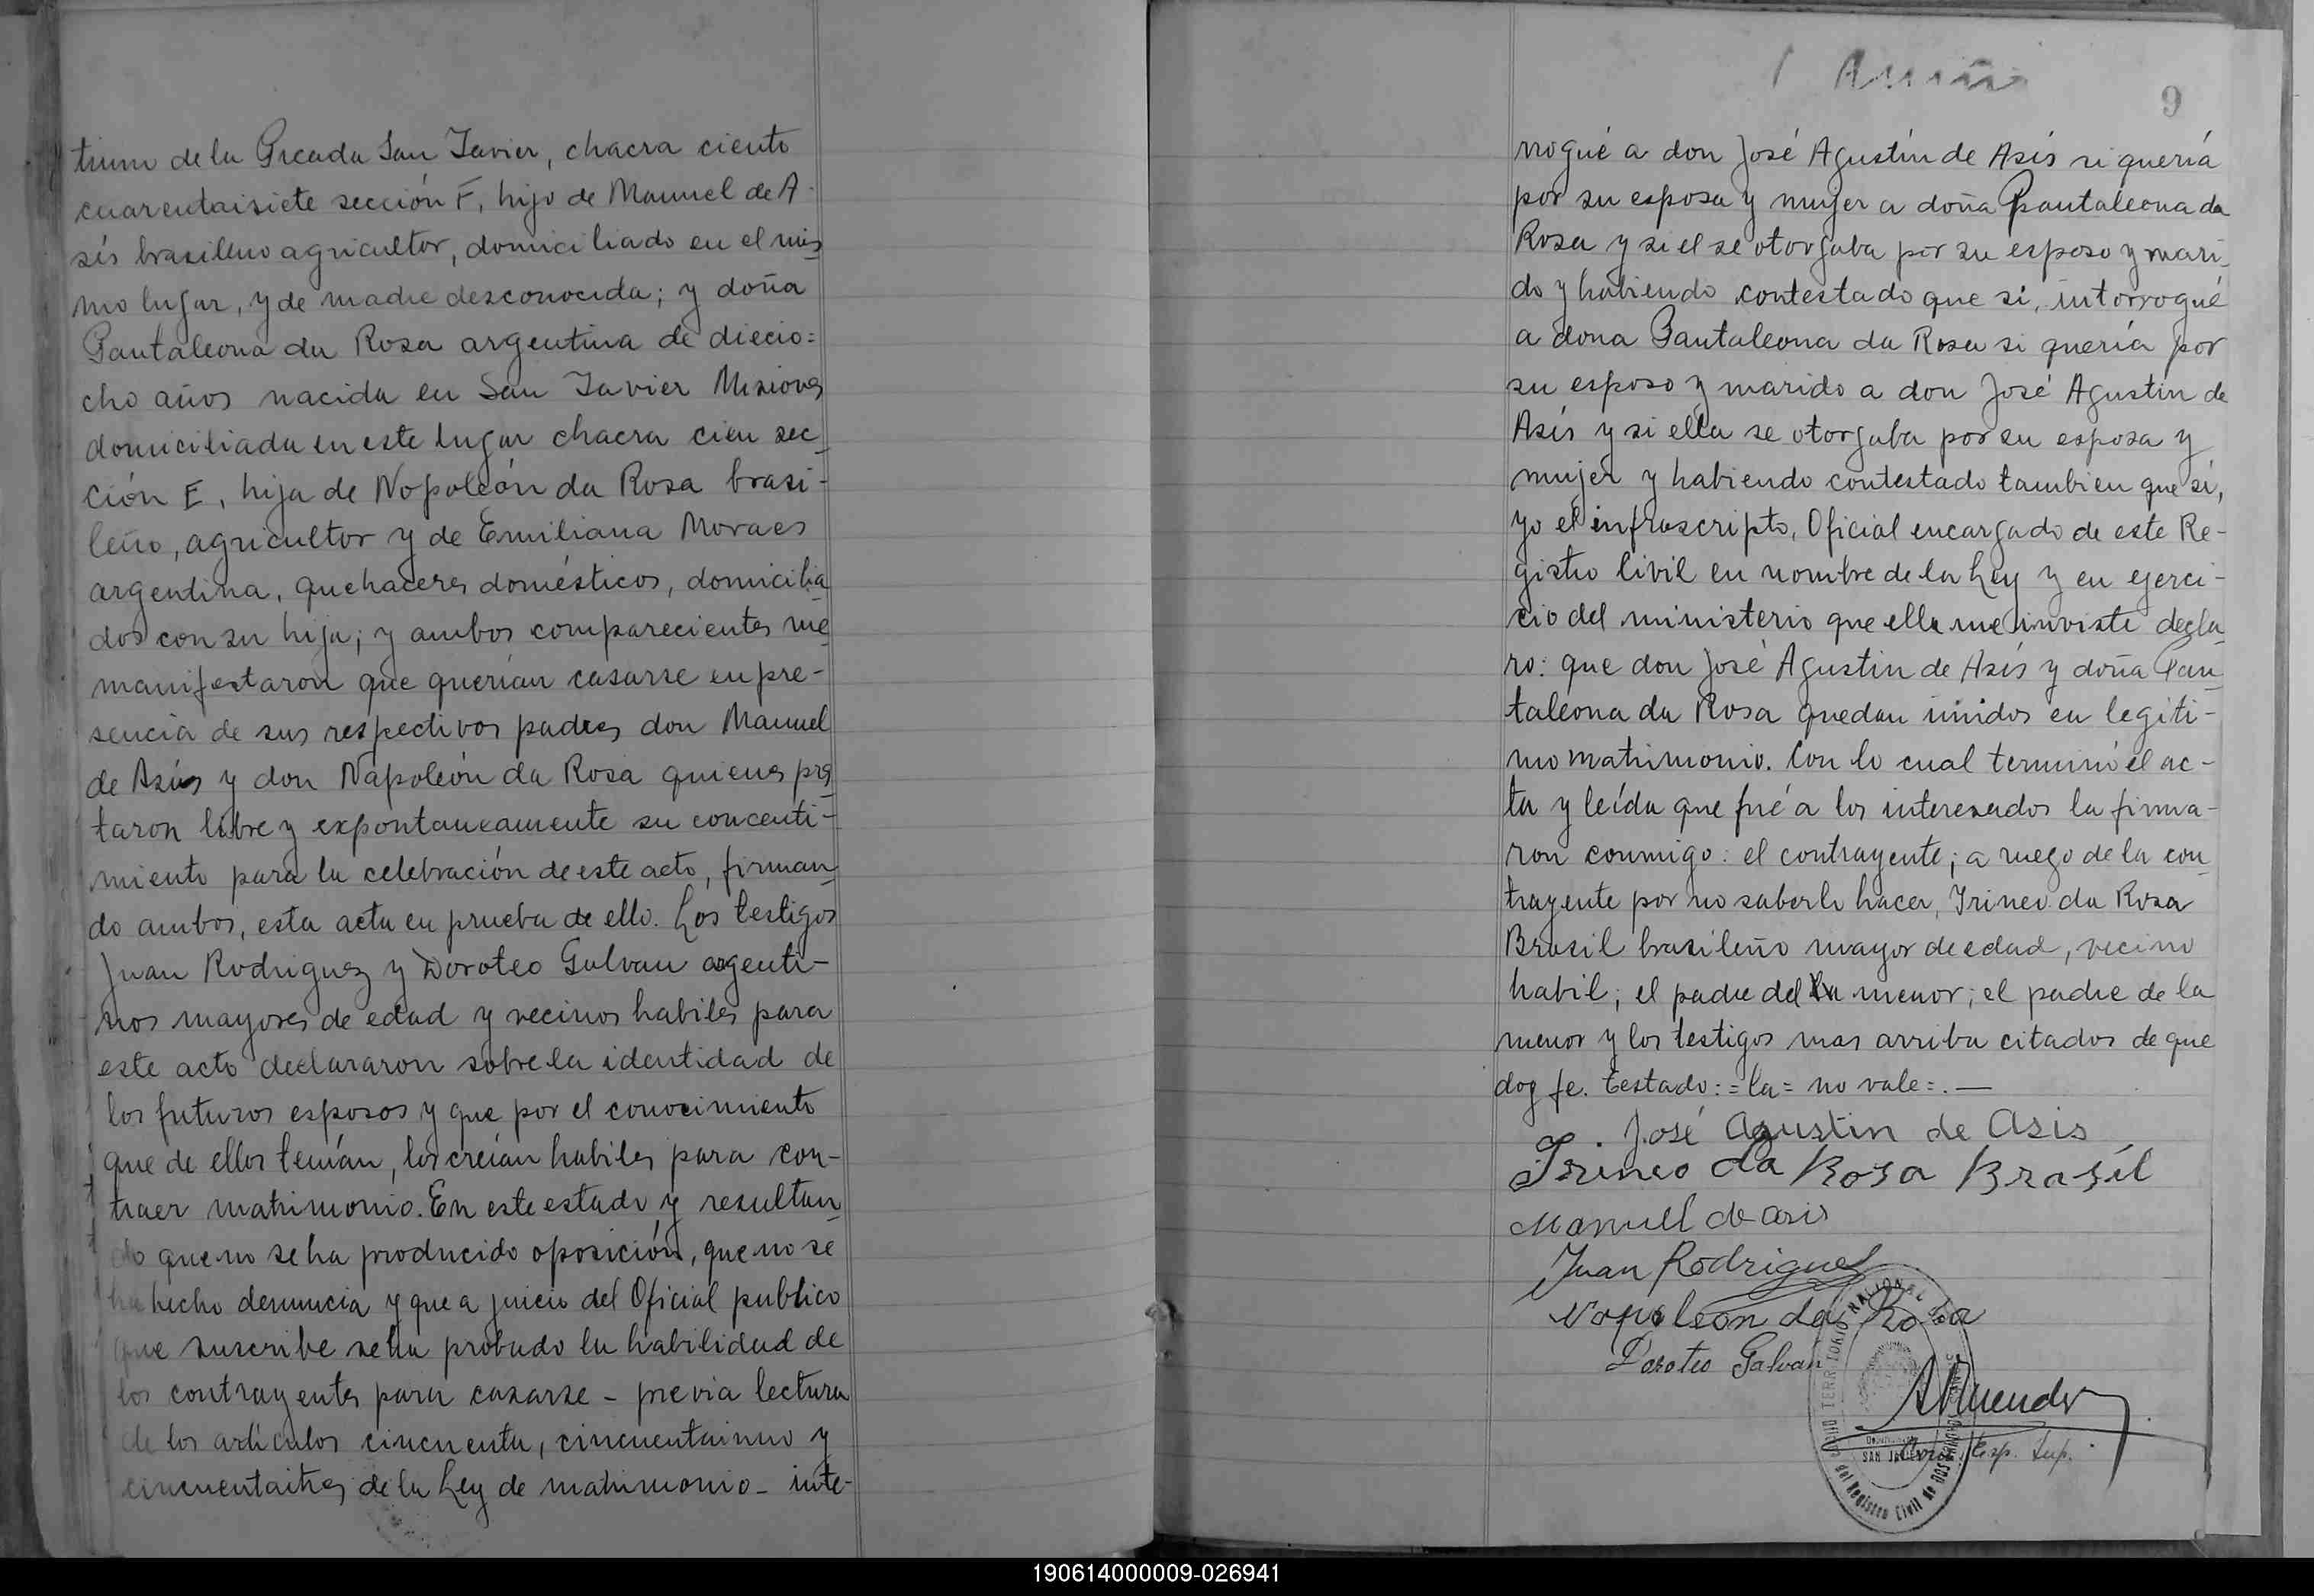 de la Picada San Javier, chacra ciento
cuarentaisiete sección F, hijo de Manuel de A-
sís brasilero agricultor, domiciliado en el mis
mo lugar, y de madre desconocida; y doña
Pantaleona da Rosa argentina de diecio=
cho años nacida en San Javier Misiones
domiciliada en este lugar chacra cien sec
ción E, hija de Nopoleón da Rosa brasi-
leño, agricultor y de Emiliana Moraes
argentina, quehaceres domésticos, domicilia
dos con su hija; y ambos comparecientes me
manifestaron que querían casarse en pre-
sencia de sus respectivos padres don Manuel
de Asís y don Napoleón da Rosa quienes pres
taron libre y expontaneamente su concenti-
miento para la celebración de este acto, firman
do ambos, esta acta en prueba de ello. Los testigos
Juan Rodriguez y Doroteo Galvan argenti-
nos mayores de edad y vecinos habiles para
este acto declararon sobre la identidad de
los futuros esposos y que por el conocimiento
que de ellos tenían, los creían habiles para con-
traer matrimonio. En este estado y resultan
do que no se ha producido oposición, que no se
ha hecho denuncia y que a juicio del Oficial publico
que suscribe se ha probado la habilidad de
los contrayentes para casarse - previa lectura
de los artículos cincuenta, cincuentaiuno y
cincuentaitres de la Ley de matrimonio - inte-
9
rrogué a don José Agustín de Asís si quería
por su esposa y mujer a doña Pantaleona da
Rosa y si el se otorgaba por su esposo y mari-
do y habiendo contestado que si, intorrogué
a dona Pantaleona da Rosa si quería por
su esposo y marido a don José Agustin de
Asís y si ella se otorgaba por su esposa y
mujer y habiendo contestado tambien que sí,
yo el infrascripto, Oficial encargado de este Re-
gistro Civil en nombre de la Ley y en ejerci-
cio del ministerio que ella me inviste decla
ro: que don José Agustin de Asís y doña Pan
taleona da Rosa quedan unidos en legíti-
mo matrimonio. Con lo cual terminó el ac-
ta y leída que fué a los interesados la firma-
ron conmigo: el contrayente; a ruego de la con
trayente por no saberlo hacer, Irineo da Rosa
Brasil brasileño mayor de edad, vecino
habil; el padre del la menor; el padre de la
menor y los testigos mas arriba citados de que
doy fe. Testado: = la = no vale =. —
José Agustin de Asis
Irineo da Rosa Brasil
Manuel de asis
Juan Rodriguez
Napoleon da Rosa
Doroteo Galvan
SAN JAVIER
Esp. Sup.
190614000009-026941